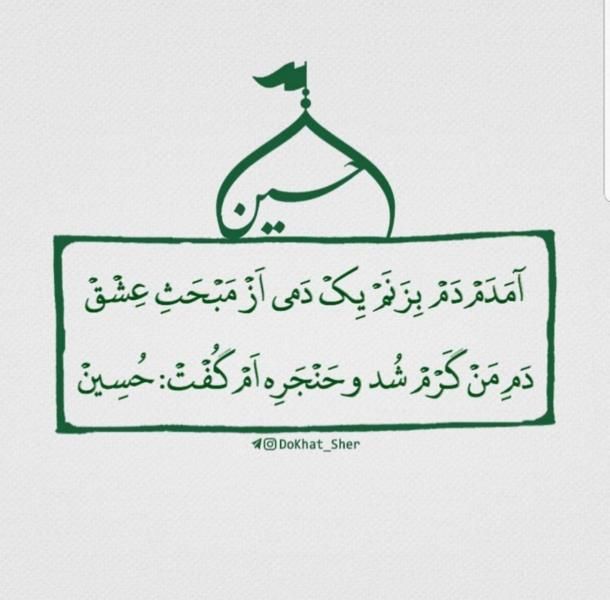 حسین
آمَدَمْ دَمْ بِزَنَمْ یِکْ دَمی اَزْ مَبْحَثِ عِشْقْ
دَمِ مَنْ گَرْمْ شُد و حَنْجَرِه اَمْ گُفْتْ: حُسِینْ
DoKhat_Sher